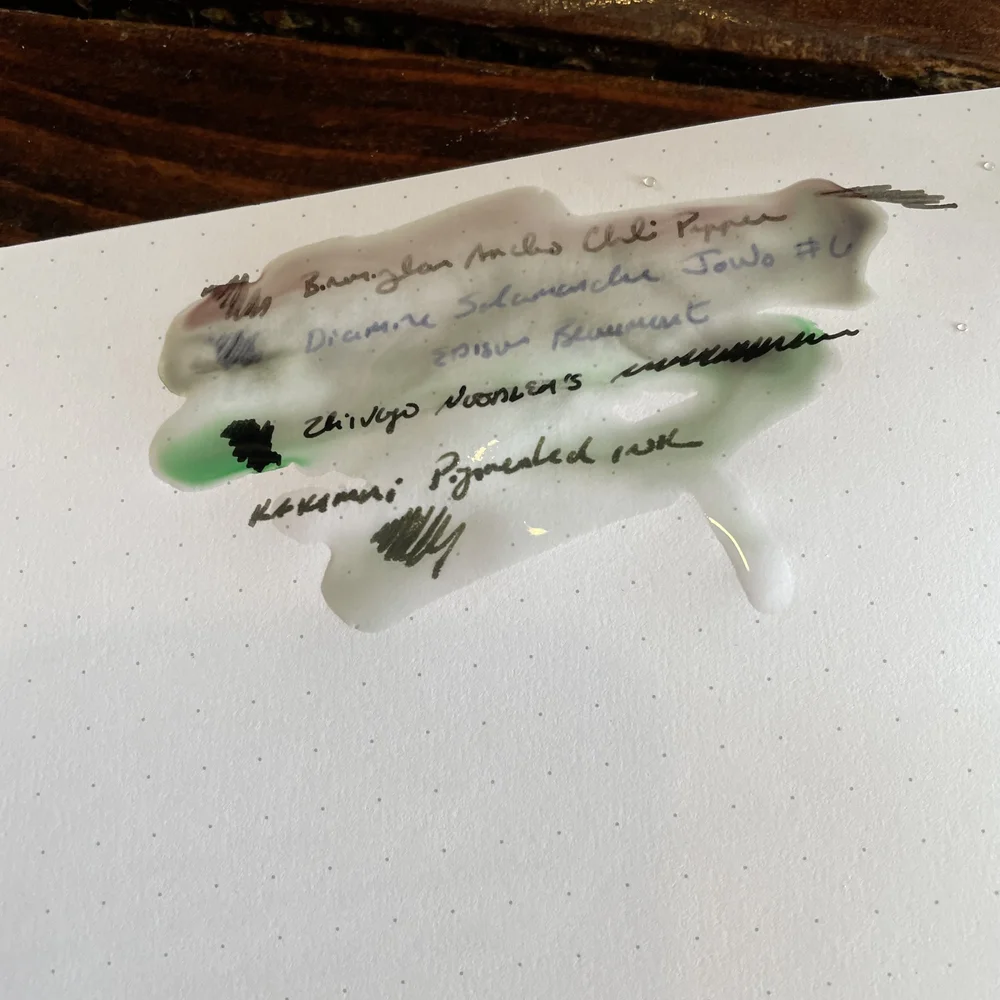 Birmingham Ancho Chili Pepper
Diamine Salamander JoWo #6
Edison Beaumont
Zhivago Noodler's
KAKIMORI Pigmented ink